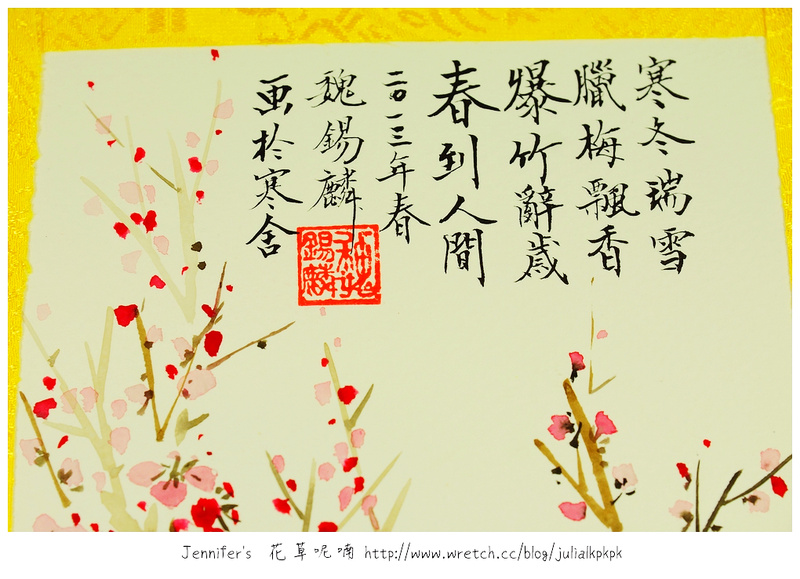 寒冬瑞雪
臘梅飄香
爆竹辭歲
春到人間
二〇一三年春
魏錫麟
画於寒舍
錫麟
Jennifer's 花草呢喃 http://www.wretch.cc/blog/julialkpkpk